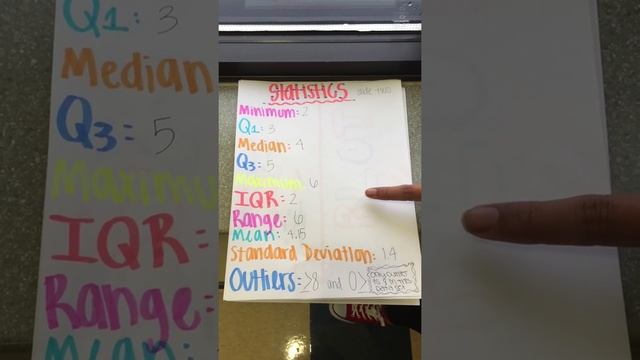 STATISTICS side two
Minimum: 2
Q1: 3
Median: 4
Q3: 5
Maximum: 6
IQR: 2
Range: 6
Mean: 4.15
Standard Deviation: 1.4
Outliers: >8 and 0>
only outlier
is 8 in this
data set
Q1: 3
Median
Q3: 5
Maximu
IQR:
Range:
Mean: